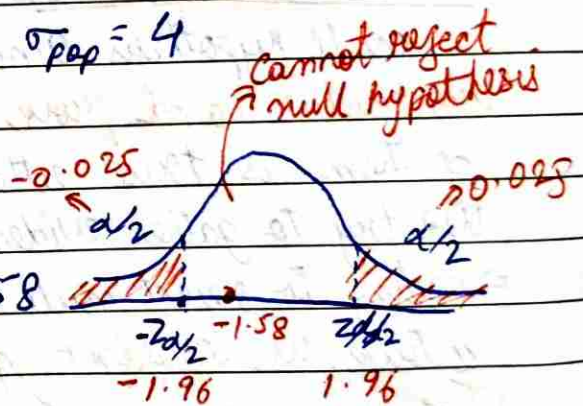 σpop = 4
Cannot reject
null hypothesis
-0.025
0.025
α/2
α/2
58
-1.58
-Zα/2
-1.96
1.96